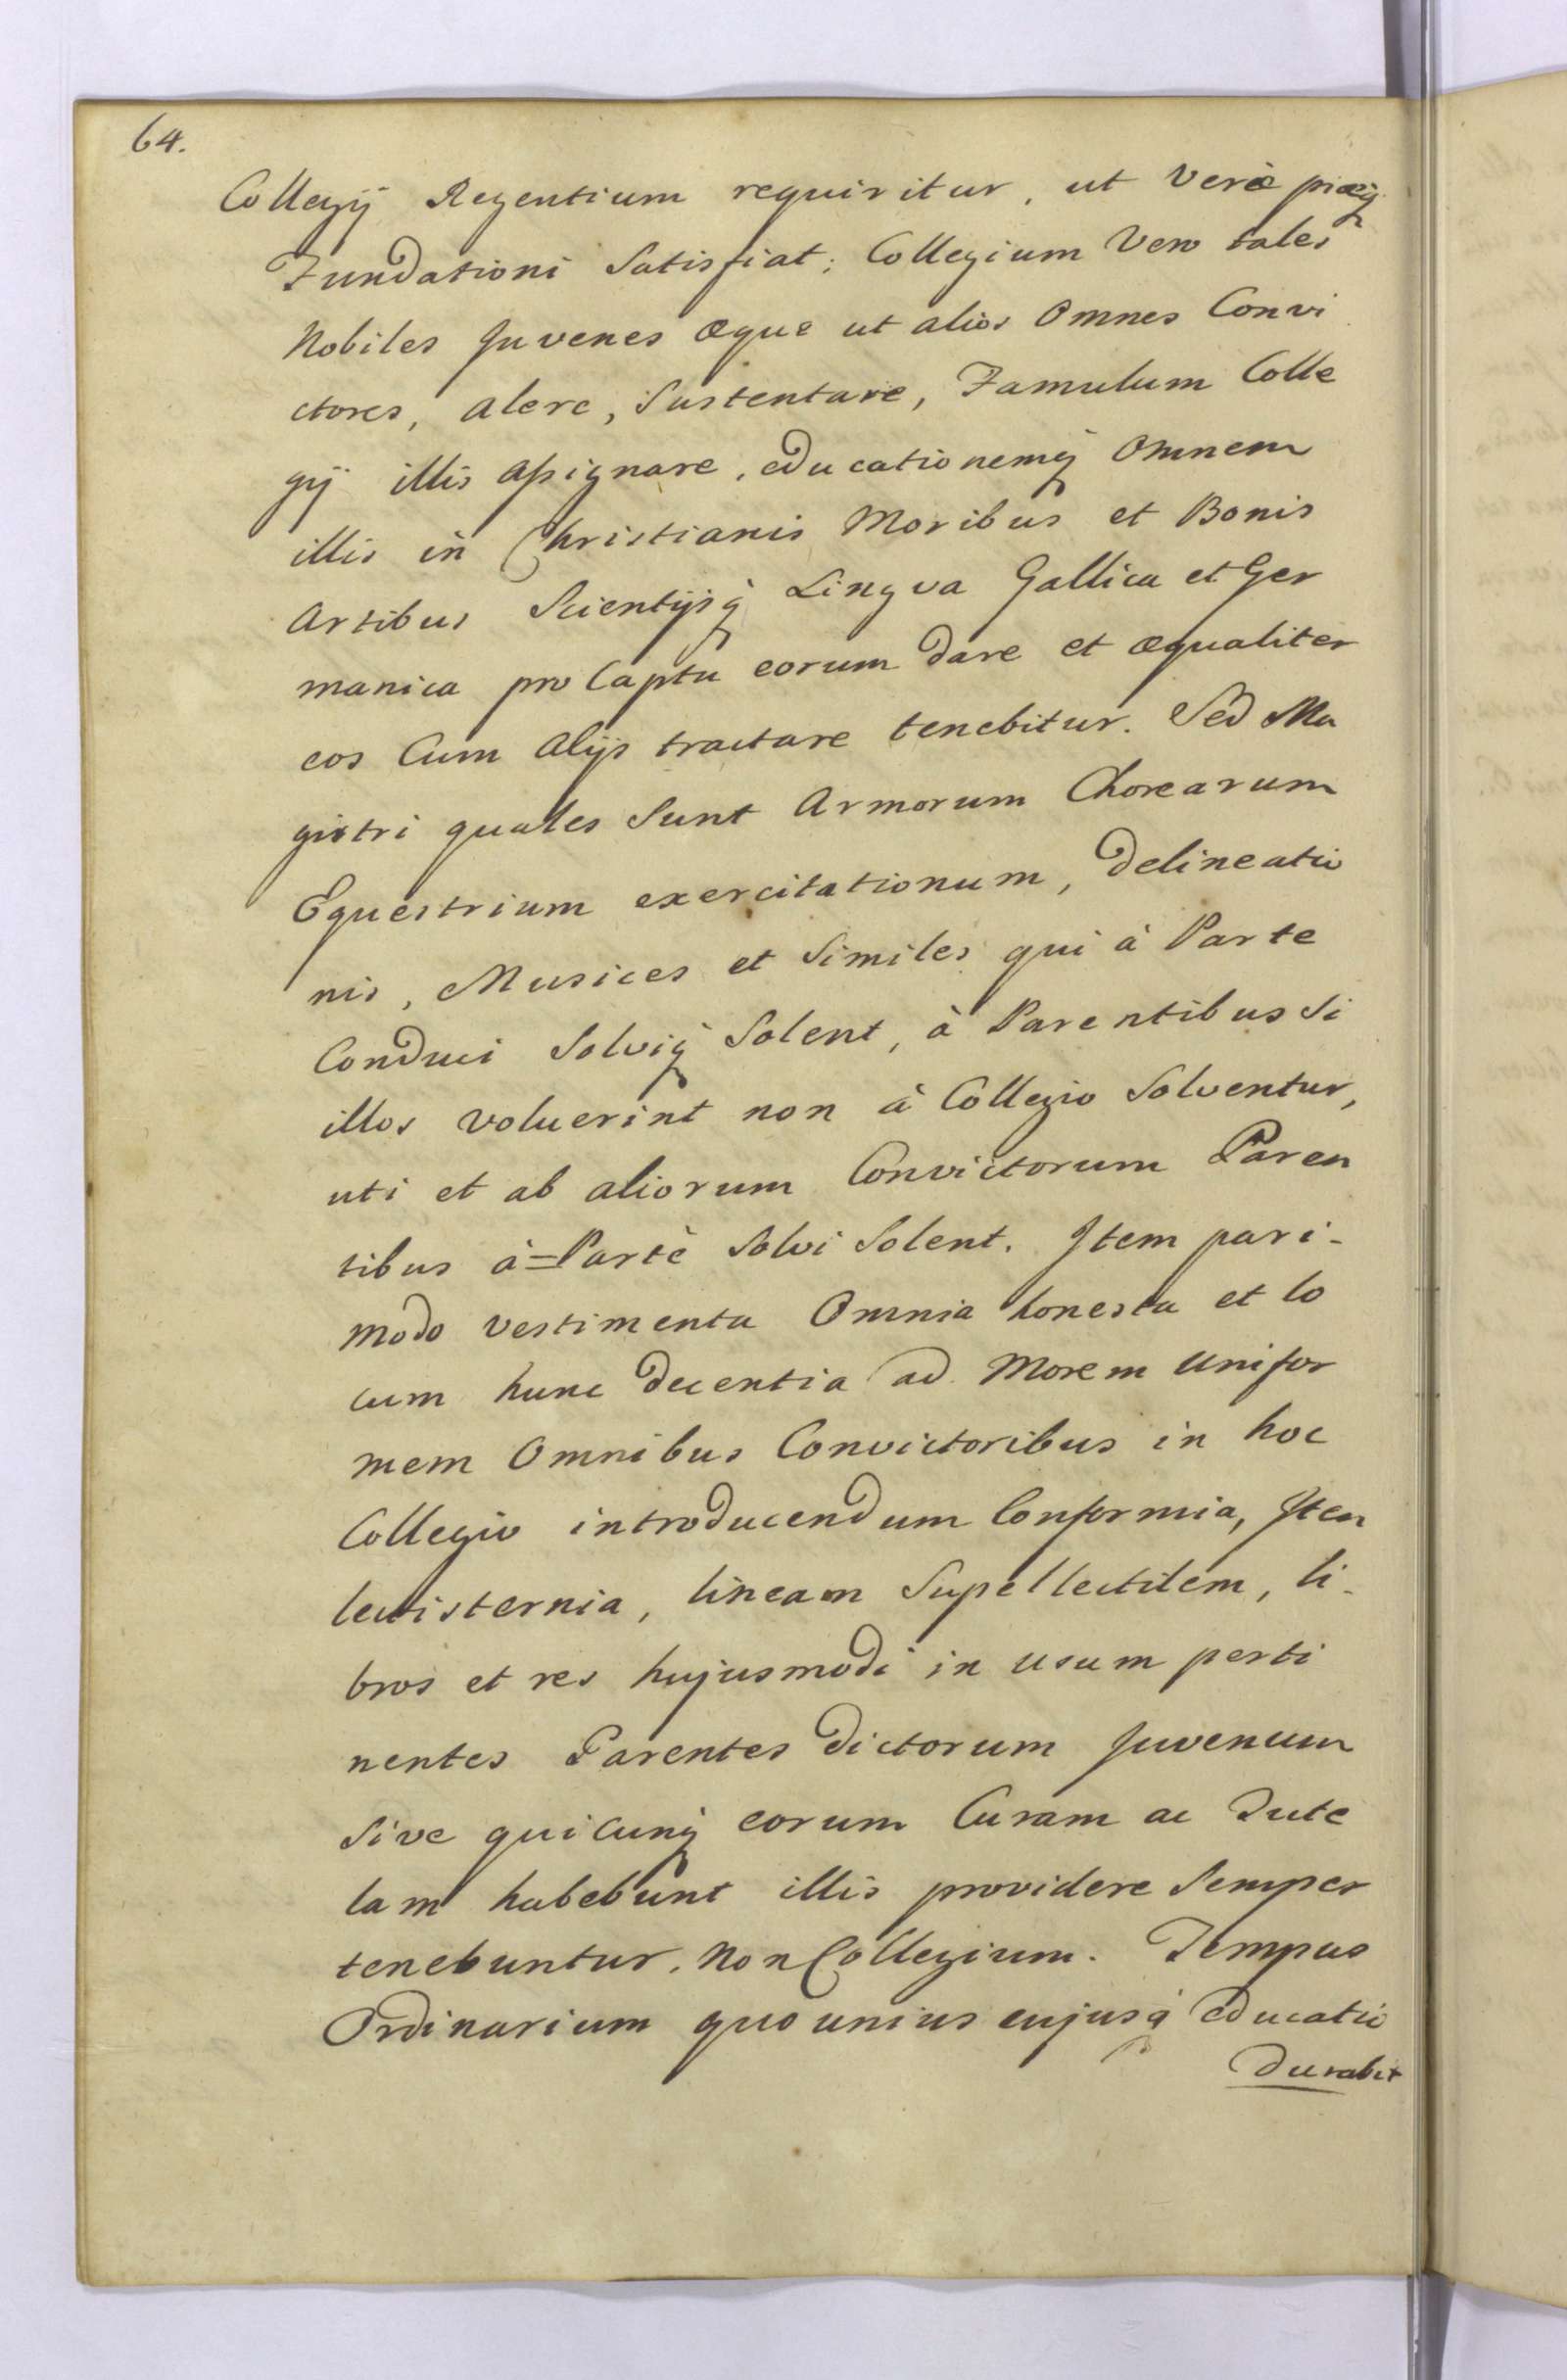 64.
Collegij Regentium requiritur, ut Veræ piæq́
Fundationi Satisfiat; Collegium Vero tales
Nobiles Juvenes æque ut alios Omnes Convi
ctores, alere, Sustentare, Famulum Colle
gij illis assignare, educationemq́ Omnem
illis in Christianis Moribus et Bonis
Artibus Scientijsq́ Lingva Gallica et Ger
manica pro Captu eorum dare et æqualiter
eos Cum Alijs tractare tenebitur. Sed Ma
gistri quales Sunt Armorum Chorearum
Equestrium exercitationum, delineatio
nis, Musices et Similes qui à Parte
Conduci Solviq́ Solent, à Parentibus Si
illos voluerint non à Collegio Solventur,
uti et ab aliorum Convictorum Paren
tibus à=Parte Solvi Solent. Item pari-
modo vestimenta Omnia honesta et lo
cum hunc decentia ad Morem Unifor
mem Omnibus Convictoribus in hoc
Collegio introducendum Conformia, Item
lectisternia, lineam Supellectilem, li-
bros et res hujusmodi in usum perti
nentes Parentes dictorum Juvenum
Sive quicunq́ eorum Curam ac Tute
lam habebunt illis providere Semper
tenebuntur, Non Collegium. Tempus
Ordinarium quo unius cujusq́ educatio
durabit